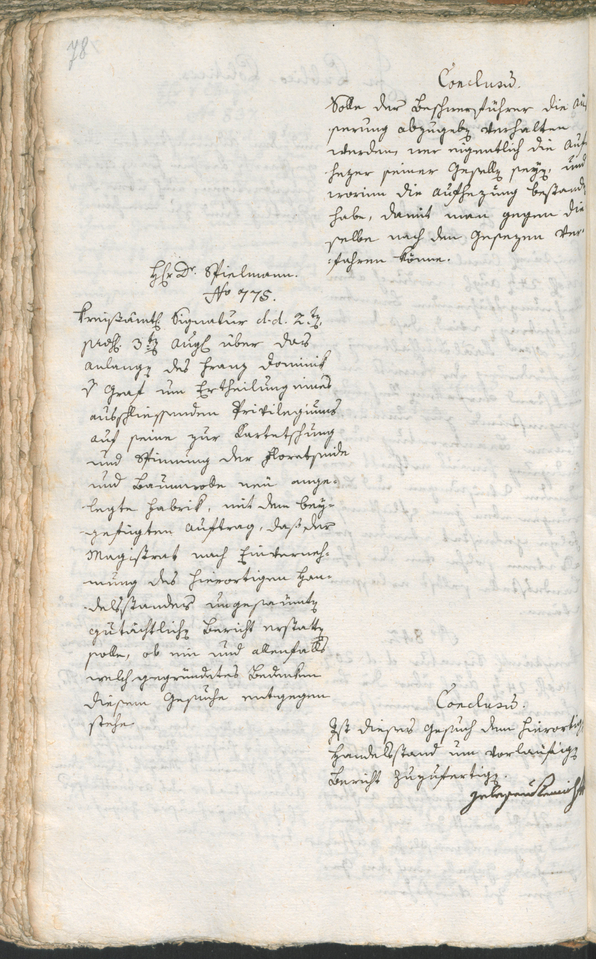 78
Conclusum.
Solle der Beschwerführer die Äu-
sserung abzugeben verhalten
werden, wer eigentlich die Auf-
hezer seiner Gesellen seyen, und
worinn die Aufhezung bestanden
habe, damit man gegen die-
selbe nach den Gesezen Ver-
fahren könne.
Hr Dr. Spielmann.
No 775.
Kreisämtl Signatur d.d. 2.ten
3ten Aug über das
Anlangen des Franz Dominik
Graf um Ertheilung eines
ausschliessenden Privilegiums
auf seine zur Kartetschung
und Spinnung der Floretseide
und Baumwohe neu ange-
legte Fabrik, mit dem bey-
gefügten Auftrag, daß der
Magistrat nach Einverneh-
mung des hierortigen Han-
delsstandes ungesaumt
gutächtlichen Bericht erstatten
solle, ob ein und allenfalls
welch gegründetes Bedenken
diesem Gesuche entgegen
stehe
Conclusum.
Ist dieses Gesuch dem hierortigen
Handelsstand um vorläufigen
Bericht zuzufertigen.